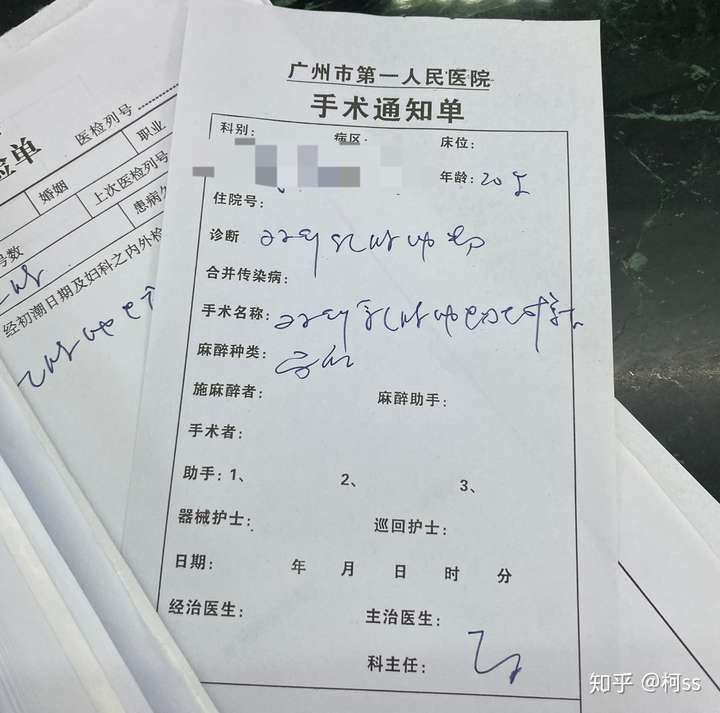 单
医检列号
婚姻
职业
上次医检列号
患病
号数
经初潮日期及妇科之内外检
广州市第一人民医院
手术通知单
科别: 病区 床位:
年龄: 20岁
住院号:
诊断 双侧乳腺肿物
合并传染病:
手术名称: 双侧乳腺肿物切除术
麻醉种类:
施麻醉者: 麻醉助手:
手术者:
助手:1、 2、 3、
器械护士: 巡回护士:
日期: 年 月 日 时 分
经治医生: 主治医生:
科主任:
知乎 @柯ss